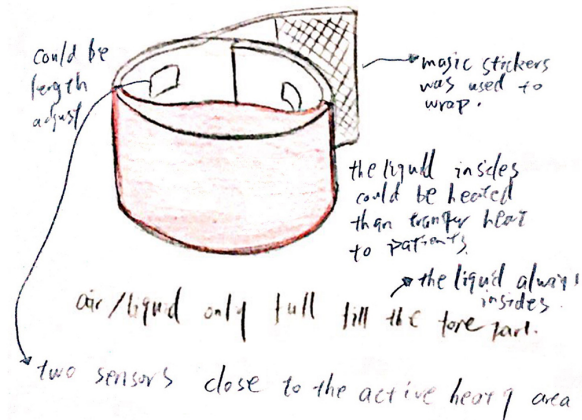 could be
length
adjust
magic stickers
was used to
wrap.
the liquid insides
could be heated
than tranfer heat
to patients.
the liquid always
insides.
air/liquid only full fill the fore part.
two sensors close to the active heating area